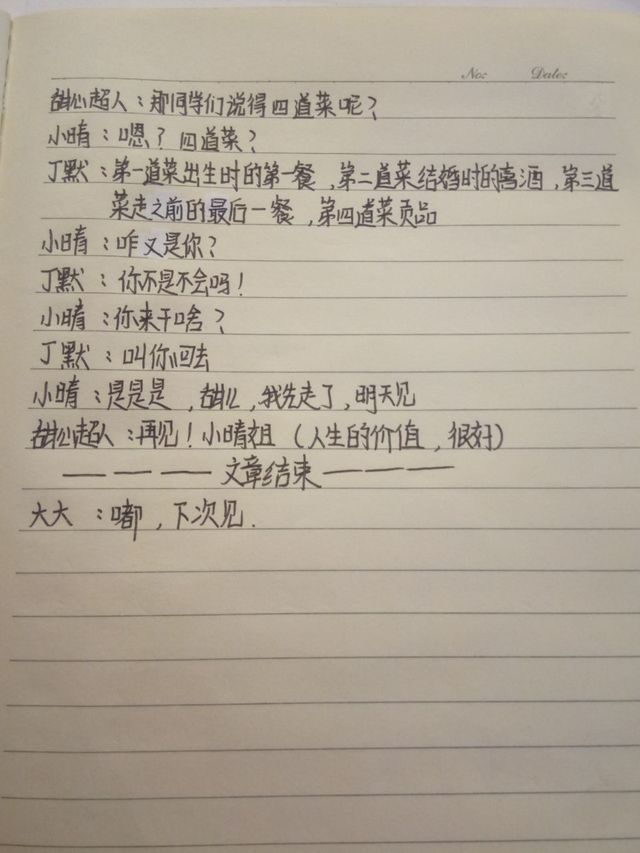 No: Date:
甜心超人：那同学们说得四道菜呢？
小晴：嗯？四道菜？
丁默：第一道菜出生时的第一餐，第二道菜结婚时的喜酒，第三道
菜走之前的最后一餐，第四道菜贡品
小晴：咋又是你？
丁默：你不是不会吗！
小晴：你来干啥？
丁默：叫你回去
小晴：是是是，甜心，我先走了，明天见
甜心超人：再见！小晴姐（人生的价值，很好）
———文章结束———
大大：嘟，下次见.